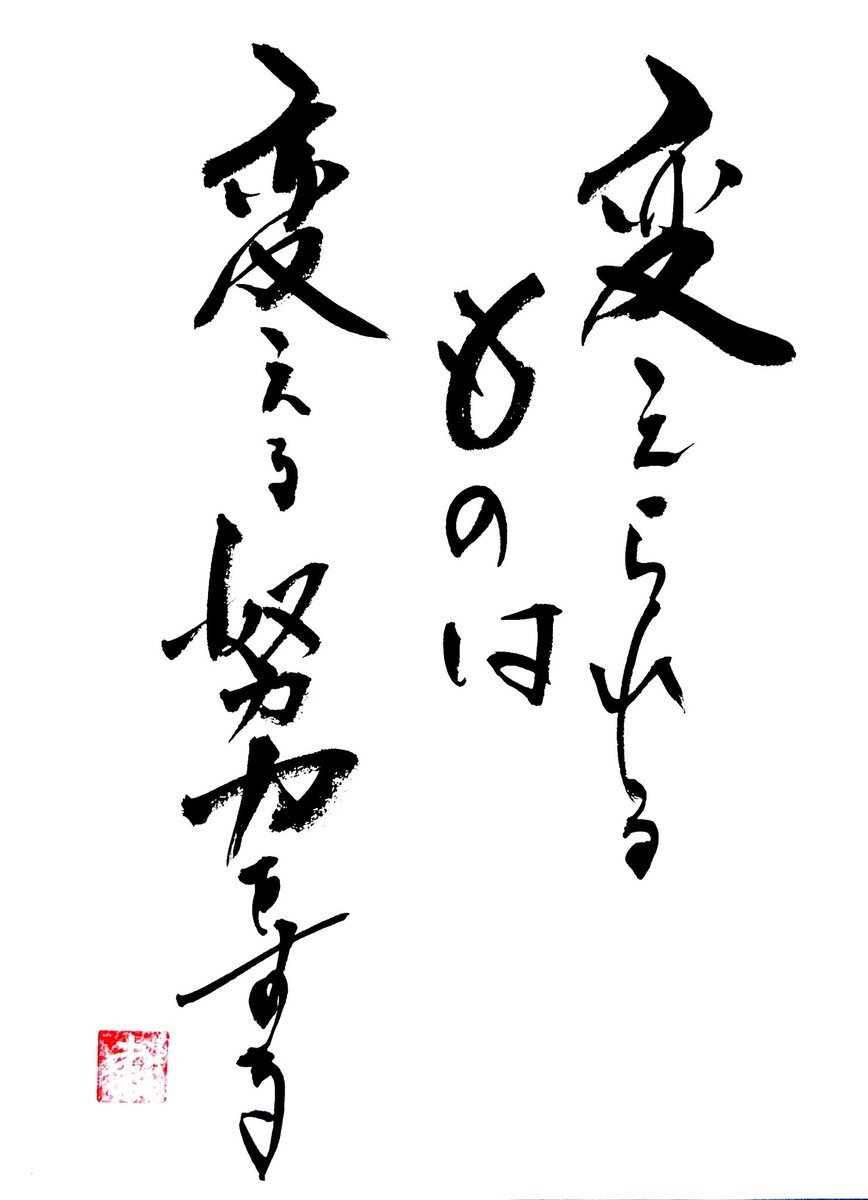 変えられる
ものは
変える努力をする